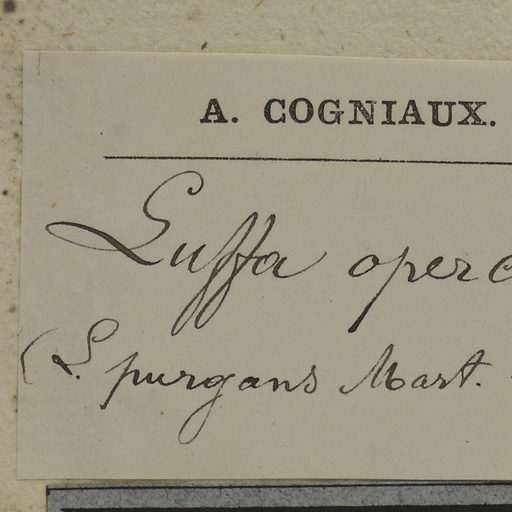 A. COGNIAUX.
Luffa operc
(L. purgans Mart.